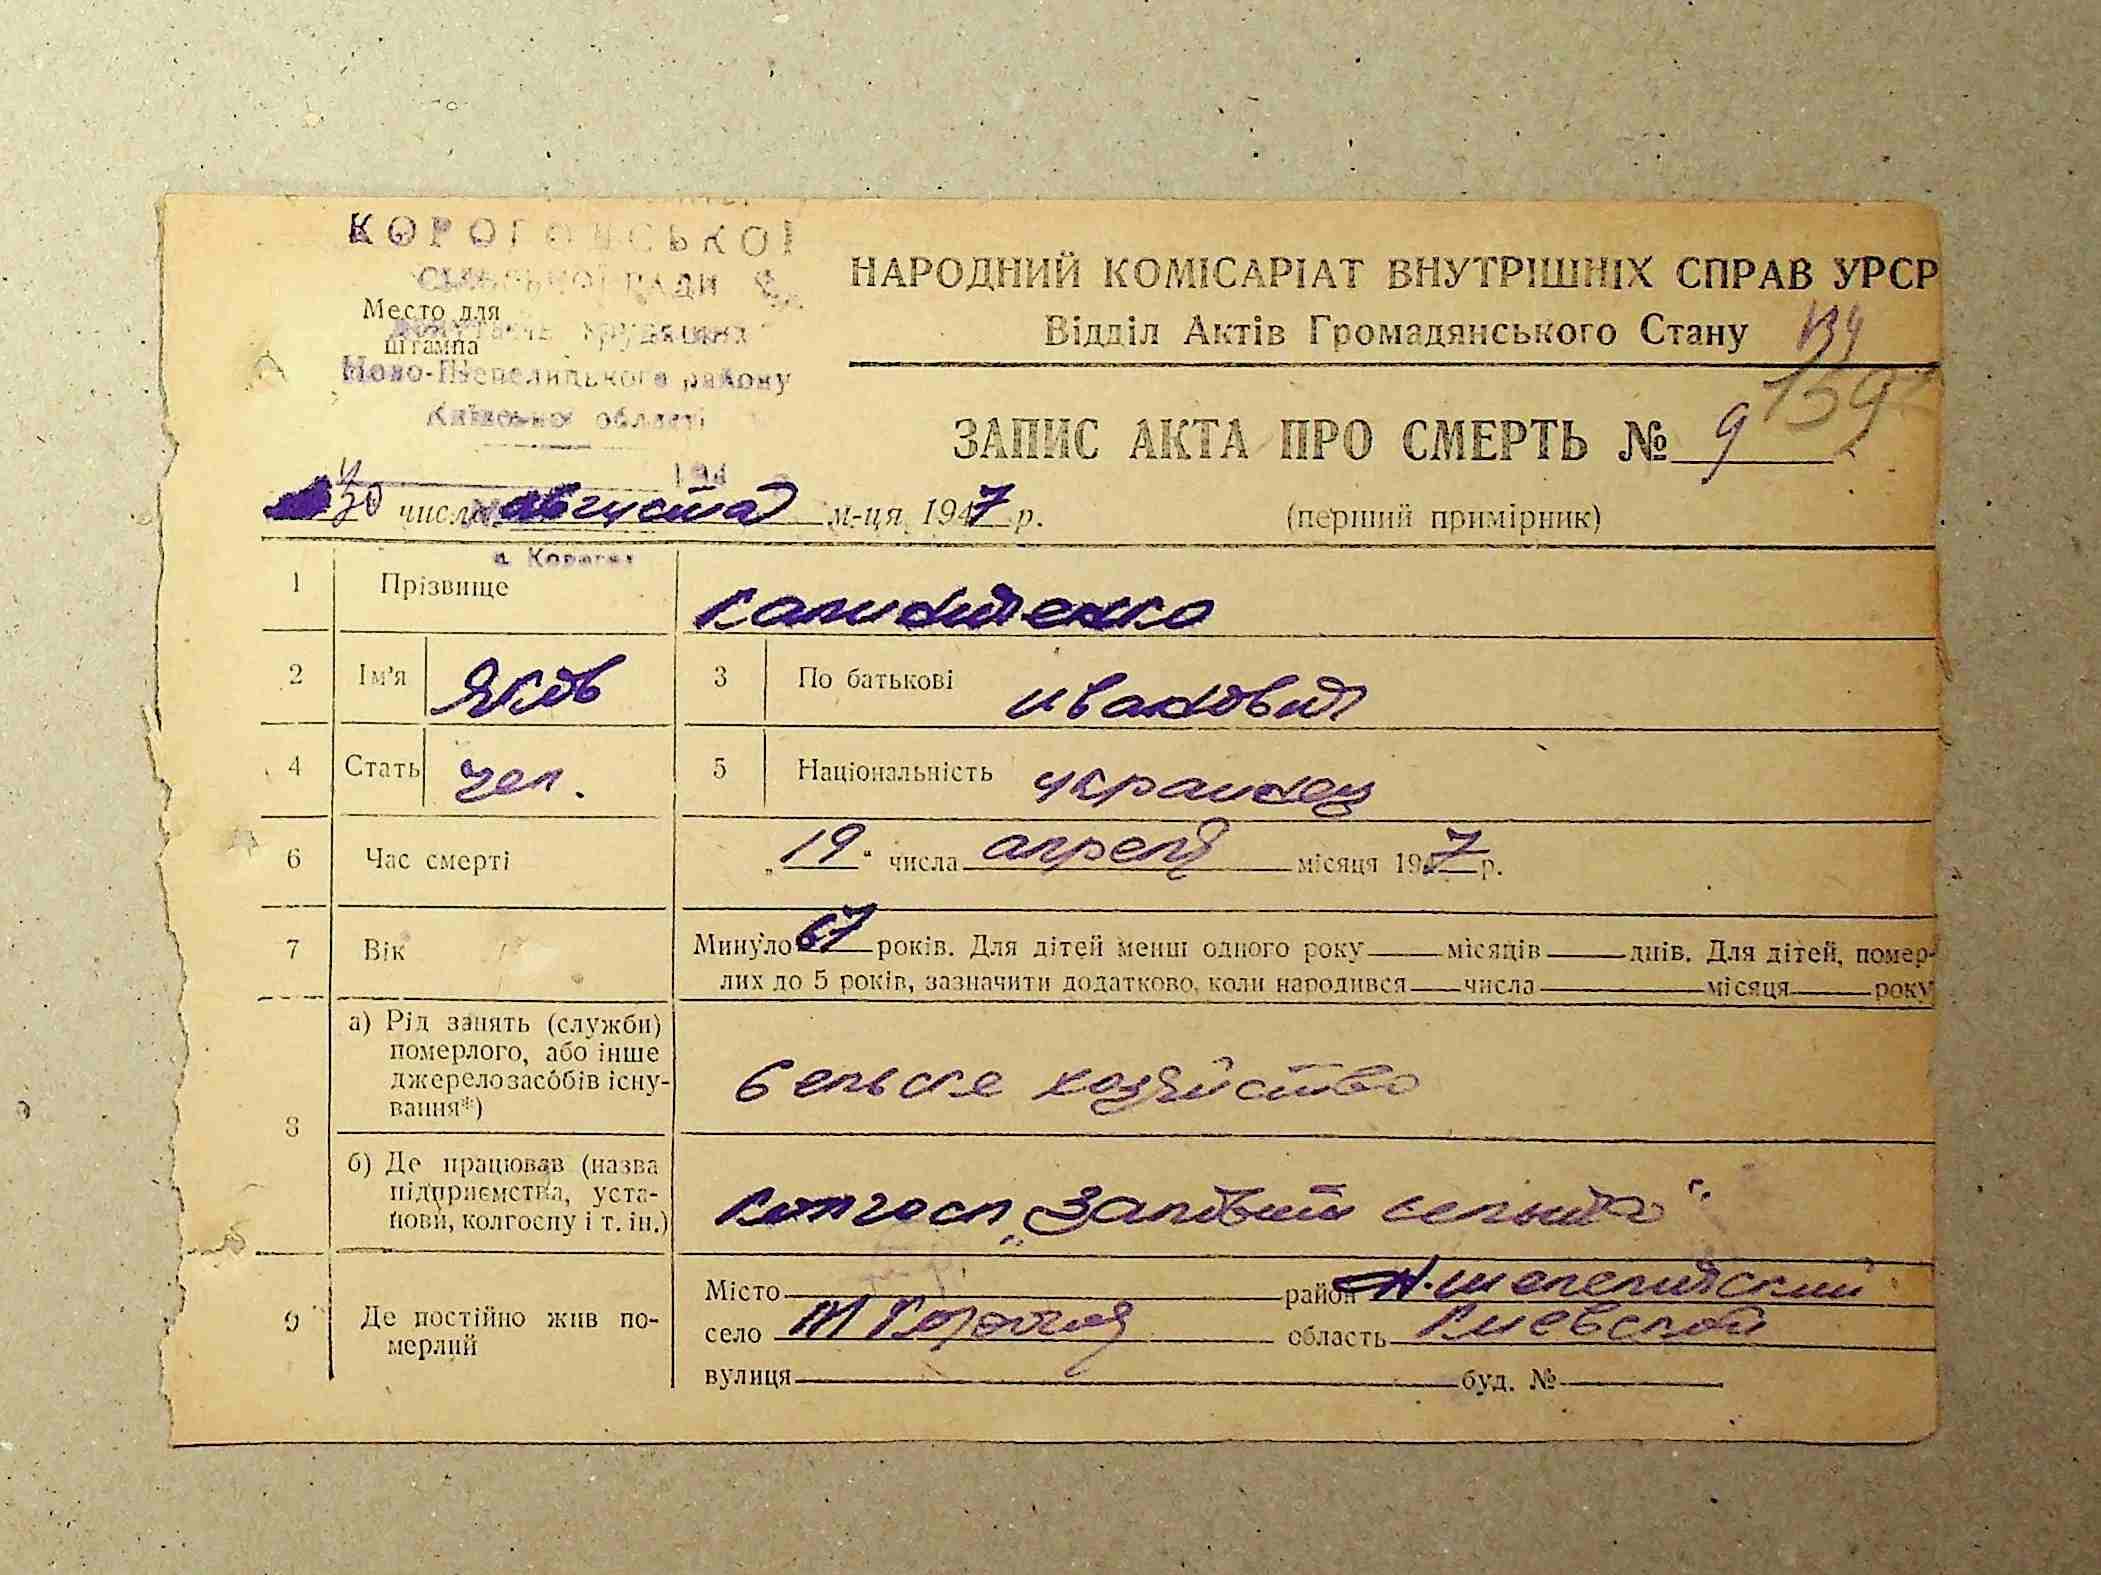 КОРОГОВСЬКОЇ
СІЛЬСЬКОЇ РАДИ
Место для
депутатів трудящих
штампа
Ново-Шепелицького району
Київської області
194
НАРОДНИЙ КОМІСАРІАТ ВНУТРІШНІХ СПРАВ УРСР
Відділ Актів Громадянського Стану
134
159
ЗАПИС АКТА ПРО СМЕРТЬ № 9
30 числа августа м-ця 1947 р.
(перший примірник)
1 Прізвище Калиниченко
2 Ім'я Яков 3 По батькові иванович
4 Стать чел. 5 Національність украинец
6 Час смерті „19“ числа апреля місяця 1947 р.
7 Вік Минуло 67 років. Для дітей менш одного року місяців днів. Для дітей, помер-
лих до 5 років, зазначити додатково, коли народився числа місяця року
8 а) Рід занять (служби)
померлого, або інше
джерело засобів існу-
вання*)
сельске хозяйство
б) Де працював (назва
підприємства, уста-
нови, колгоспу і т. ін.)
колгосп „Заповит
9 Де постійно жив по-
мерлий
Місто район Н. Шепеличский
село область Киевской
вулиця буд. №